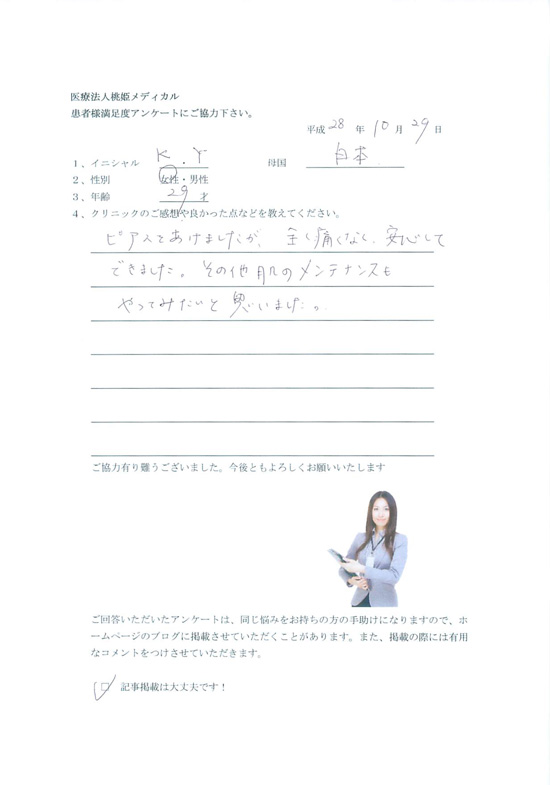 医療法人桃姫メディカル
患者様満足度アンケートにご協力下さい。
平成 28 年 10 月 29 日
1、イニシャル K . Y 母国 日本
2、性別 女性・男性
3、年齢 29 才
4、クリニックのご感想や良かった点などを教えてください。
ピアスをあけましたが、全く痛くなく、安心して
できました。その他肌のメンテナンスも
やってみたいと思いました。
ご協力有り難うございました。今後ともよろしくお願いいたします
ご回答いただいたアンケートは、同じ悩みをお持ちの方の手助けになりますので、ホ
ームページのブログに掲載させていただくことがあります。また、掲載の際には有用
なコメントをつけさせていただきます。
□ 記事掲載は大丈夫です！